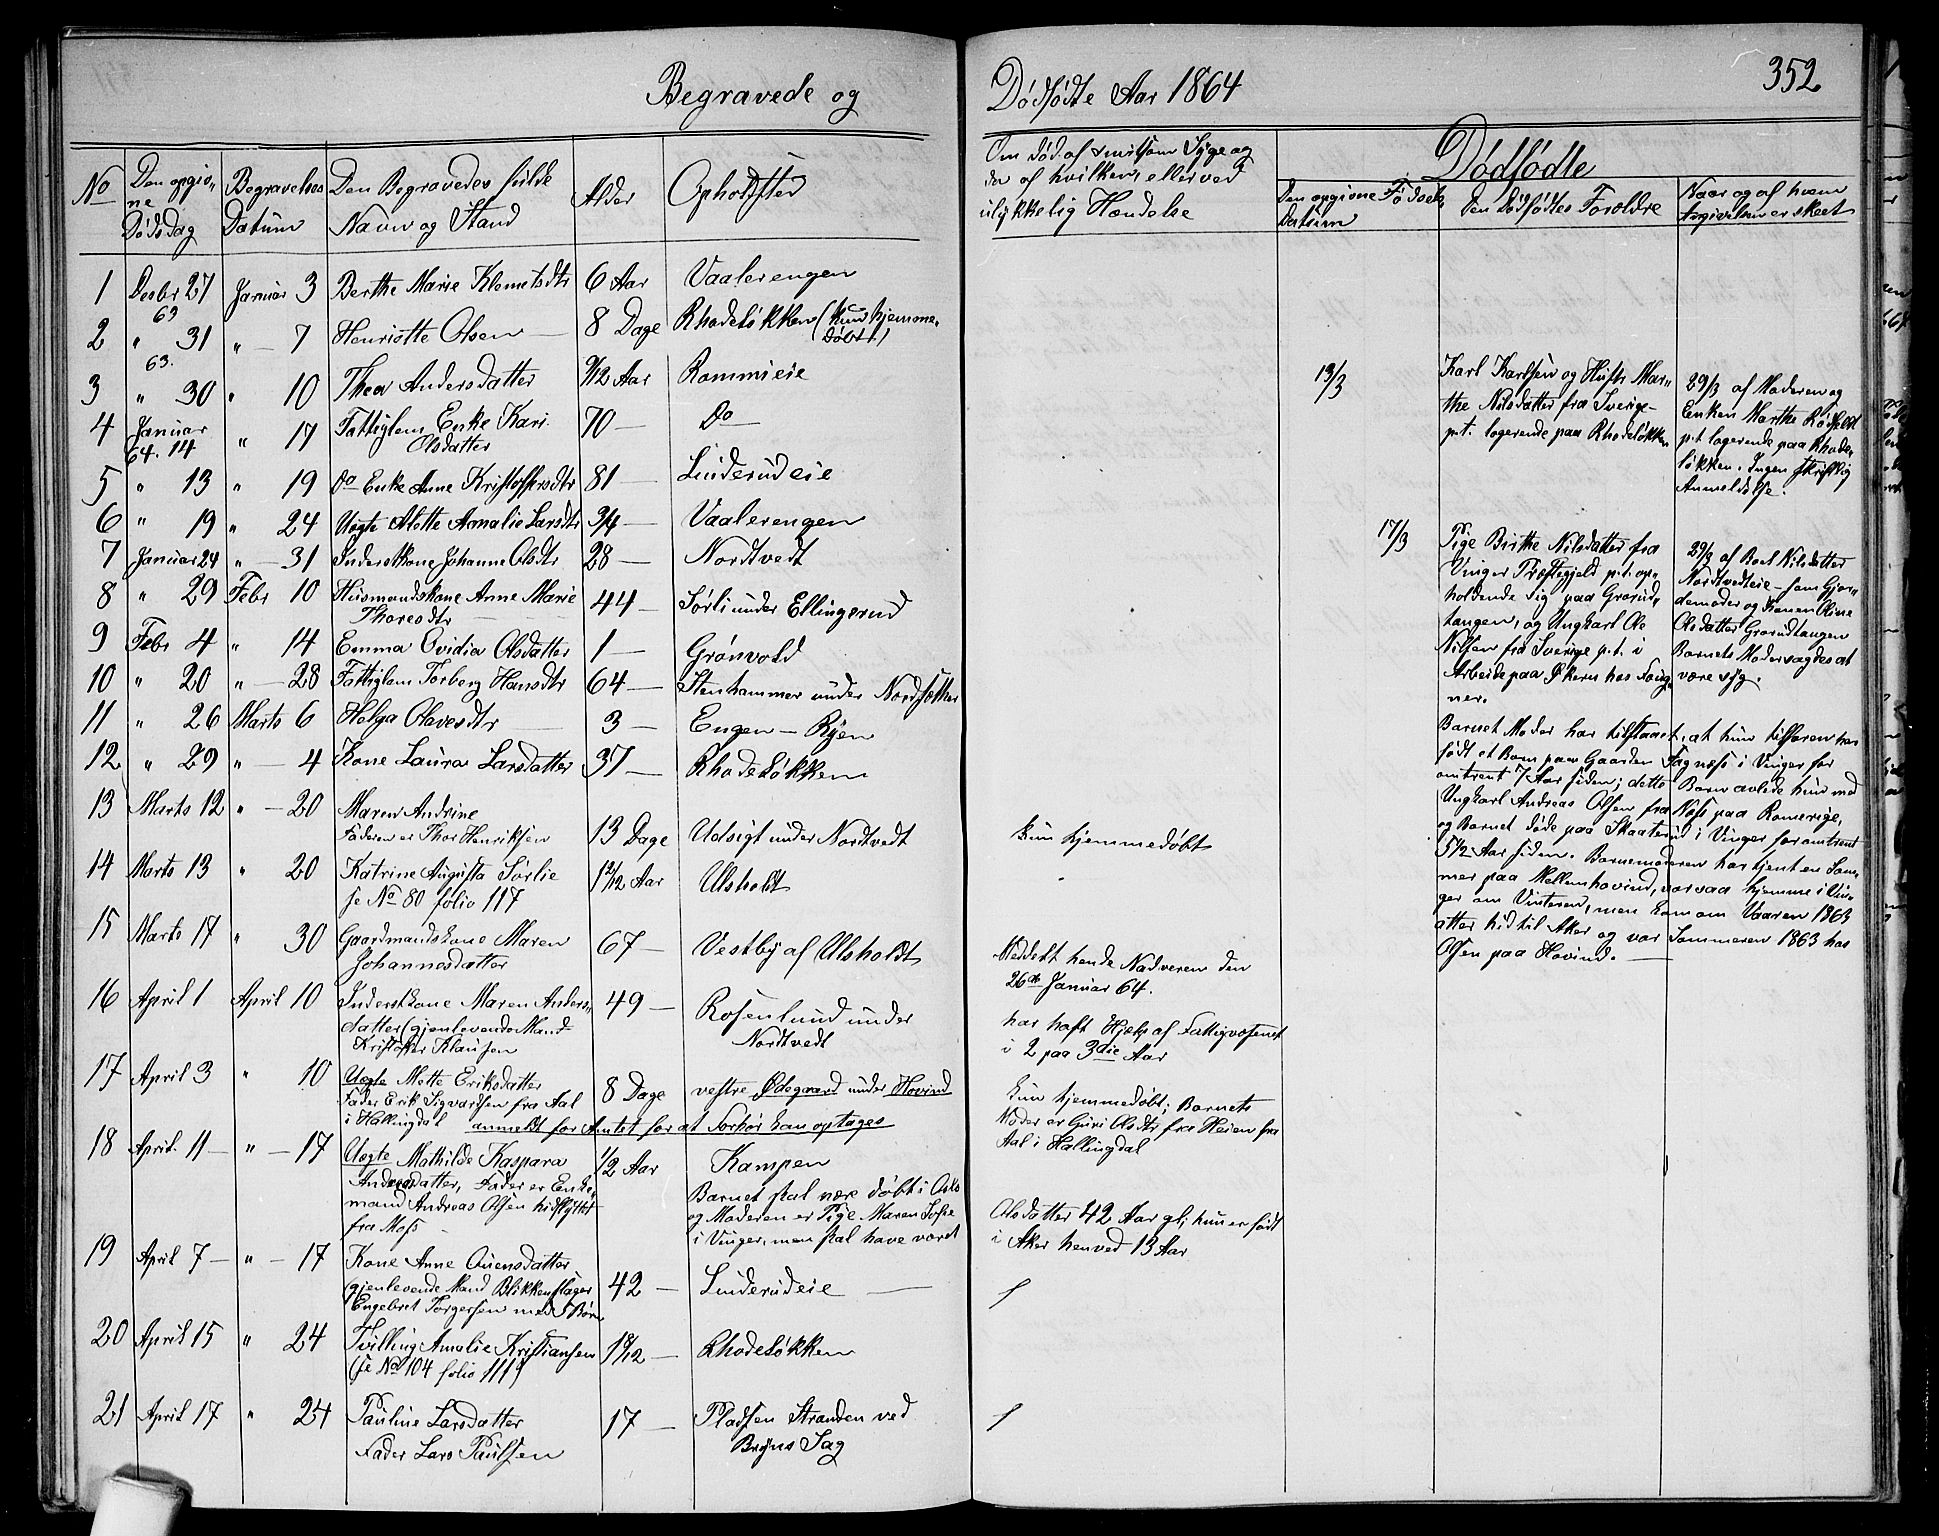 Begravede og
Dødfødte Aar 1864
352
No
Den opgiv-
ne
Dødsdag
Begravelses
Datum
Den Begravedes fulde
Navn og Stand
Alder
Opholdssted
Om død af smitsom Syge og
da af hvilken, eller ved
ulykkelig Hændelse
Dødfødte
Den opgivne Fødsels
Datum
Den Dødfødtes Forældre
Naar og af hvem
Angivelsen er skeet
1 Decbr 27 Januar 3 Berthe Marie Klemetsdtr 6 Aar Vaalerengen
63
2 " 31 " — 7 Henriette Olsen — 8 Dage Rhodeløkken (kun hjemme-
døbt)
63.
3 " 30 " 10 Thea Andersdatter 9/12 Aar Rommieie
4 Januar " 17 Fattiglem Enke Kari 70 — Do
64. 14 Olsdatter
5 " 13 " 19 do Enke Anne Kristoffersdtr 81 — Linderudeie
6 " 19 " 24 Uægte Alette Amalie Larsdtr 3/4 — Vaalerengen
7 Januar 24 " — 31 Inderstkone Johanne Olsdtr 28 — Nordtvedt
8 " 29 Febr 10 Husmandskone Anne Marie 44 — Sørli under Ellingsrud
Thoresdtr
9 Febr 4 " 14 Emma Ovidia Olsdatter 1 — Grønvold
10 " 20 " — 28 Fattiglem Torberg Hansdtr 64 — Stenhammer under Nordsætter
11 " 26 Marts 6 Helga Olavesdtr 3 — Engen — Ryen
12 " 29 " — 4 Kone Laura Larsdatter 37 — Rhodeløkken
13 Marts 12 " — 20 Maren Andrine
Faderen er Thor Henriksen 13 Dage Udsigt under Nordtvedt
kun hjemmedøbt
14 Marts 13 " 20 Katrine Augusta Sørlie 1 2/12 Aar Ulsholt
se No 80 folio 117
15 Marts 17 " 30 Gaardmandskone Maren 67 — Vestby af Ulsholdt
Johannesdatter
Meddelt hende Nadveren den
26de Januar 64.
16 April 1 April 10 Inderstkone Maren Anders- 49 — Rosenlund under
datter (gjenlevende Mand Nordtvedt
Kristofer Klausen
har haft Hjælp af Fattigvæsenet
i 2 paa 3die Aar
17 April 3 " 10 Uægte Mette Eriksdatter 8 Dage vestre Ødegaard under Hovind
Fader Erik Sigvardsen fra Aal
i Hallingdal anmeldt for Amtet for at Forhør kan optages
kun hjemmedøbt; Barnets
Moder er Guri Olsdtr fra Heien fra
Aal i Hallingdal
18 April. 11 — " — 17 Uægte Mathilde Kaspara 1/2 Aar Kampen
Andreasdatter, Fader er Enke-
mand Andreas Olsen hidflyttet
fra Moss
Barnet skal være døbt i Oslo
og Moderen er Pige Maren Sofie
i Vinger, men skal have været
Olsdatter 42 Aar gl; hun er født
i Aker henved 13 Aar
19 April 7 — " — 17 Kone Anne Auensdatter
(gjenlevende Mand Blikkenslager 42 — Linderudeie —
Engebret Torgersen med 5 Børn
20 April 15 " 24 Tvilling Amalie Kristiansen 1 8/12 — Rhodeløkken
(se No 104 folio 111)
21 April 17 " 24 Pauline Larsdatter 17 — Pladsen Stranden ved
Fader Lars Paulsen Bryns Sag
13/3
Karl Karlsen og Hustr Mar-
the Nilsdatter fra Sverige
p.t. logerende paa Rhodeløkken
29/3 af Moderen og
Enken Marthe Rødfeldt
p.t logerende paa Rhode-
løkken. Ingen skriftlig
Anmeldelse.
17/3
Pige Birthe Nilsdatter fra
Vinger Præstegjeld p.t. op-
holdende sig paa Grorud-
tangen, og Ungkarl Ole
Nilsen fra Sverige p.t. i
Arbeide paa Økern hos Fang-
ner.
29/3 af Boel Nilsdatter
Nordtvedteie — som Gjor-
demoder og Konen Oline
Olsdatter Grorudtangen
Barnets Moder sagdes at
være syg.
Barnet Moder har tilstaaet, at hun tilforen har
født et Barn paa Gaarden Fagnæss i Vinger for
omtrent 7 Aar siden; dette Barn avlede hun med
Ungkarl Andreas Olsen fra Næss paa Romerige,
og Barnet døde paa Skaaterud i Vinger for omtrent
5 1/2 Aar siden. Barnemoderen har tjent en Som-
mer paa Mellemhovind, var saa hjemme i Vin-
ger om Vinteren, men kom om Vaaren 1863
atter hid til Aker og var Sommeren 1863 hos
Olsen paa Hovind. —